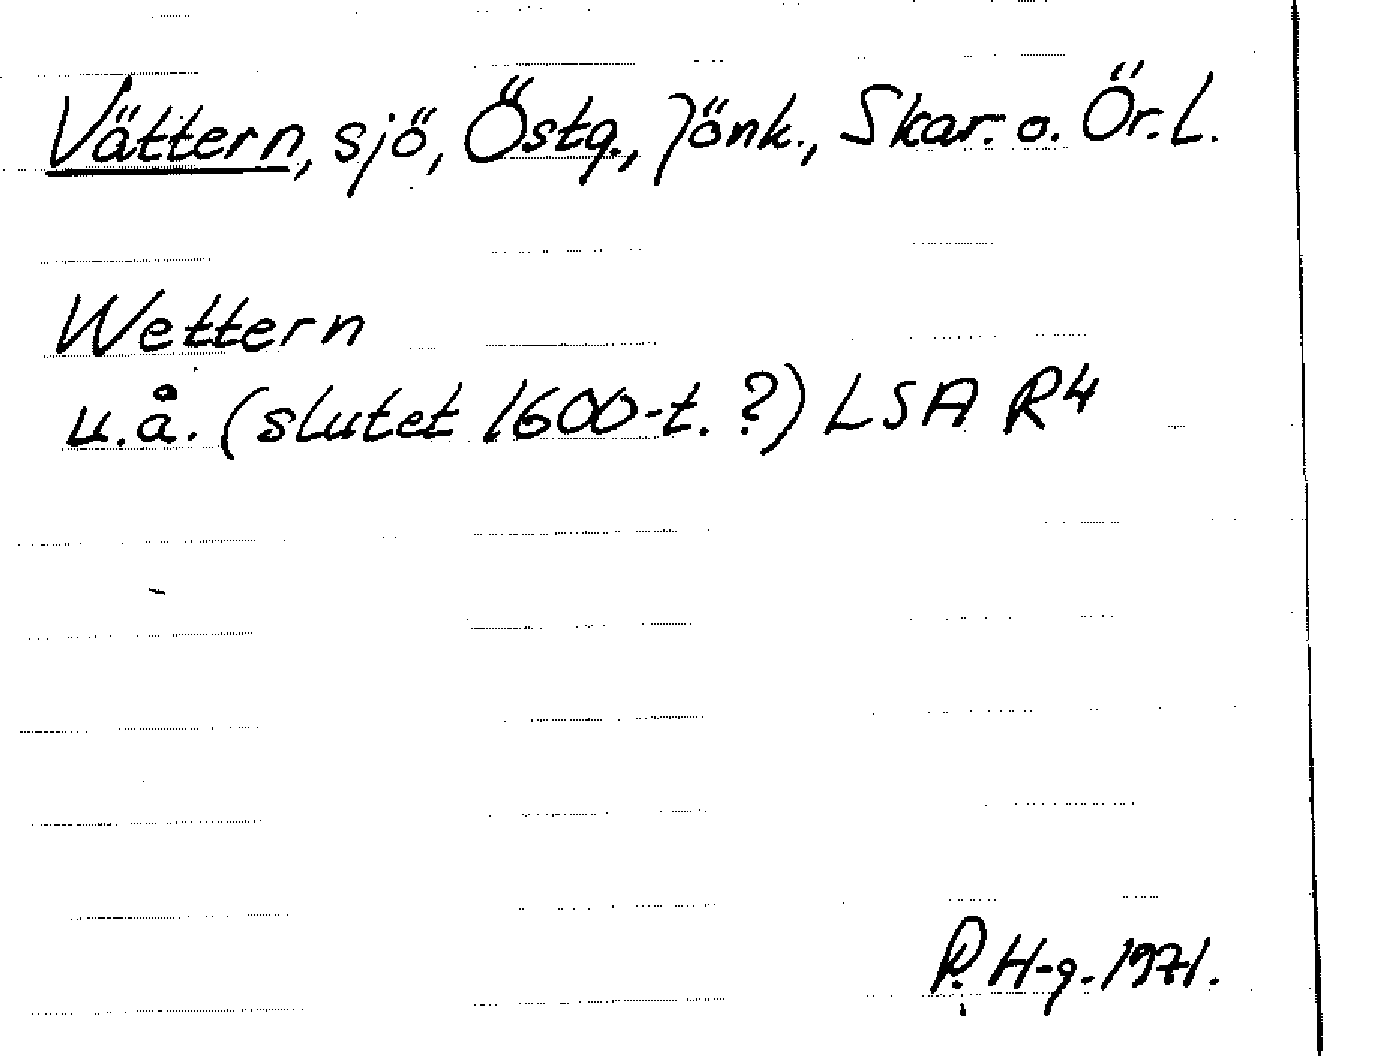 Vättern, sjö, Östg., Jönk., Skar. o. Ör. L.
Wettern
u.å. (slutet 1600-t. ?) LSA R4
R. H-g. 1971.